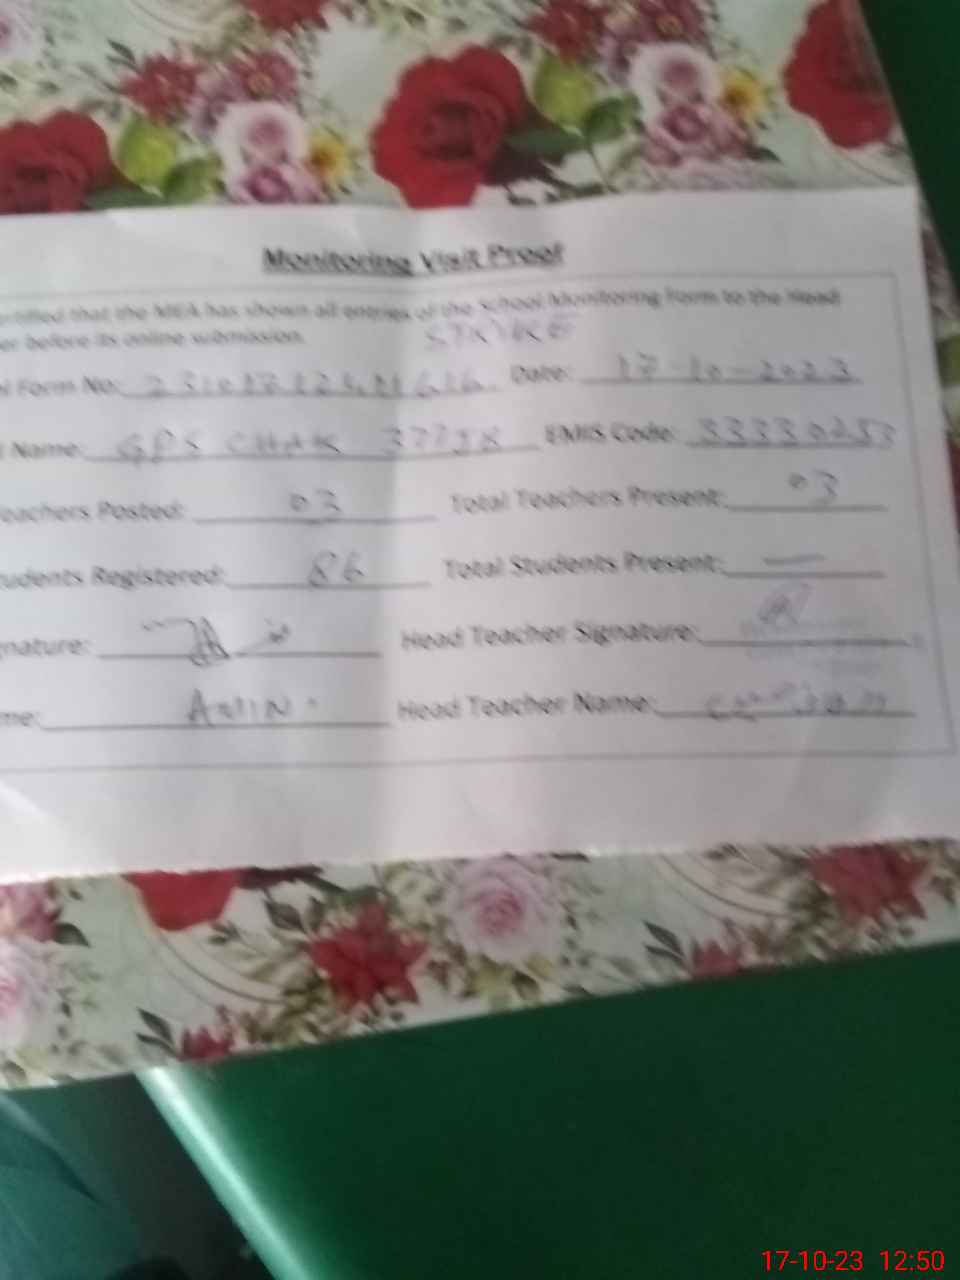 Monitoring Visit Proof
ertified that the MEA has shown all entries of the School Monitoring Form to the Head
er before its online submission.
STRIKE
l Form No: Date: 17-10-2023
l Name: GPS CHAK 377JB EMIS Code: 33330253
eachers Posted: 03 Total Teachers Present: 03
tudents Registered: 86 Total Students Present: —
gnature: Head Teacher Signature:
me: Head Teacher Name:
17-10-23 12:50